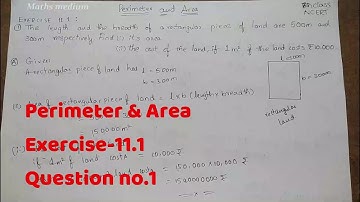 Maths medium
Perimeter and Area
7th class
NCERT
Exercise 11.1 :
① The length and the breadth of a rectangular piece of land are 500m and
300m respectively. Find (i) its area
(ii) the cost of the land, if 1m² of the land costs ₹10,000
Given
A rectangular piece of land has l = 500m
b = 300m
l = 500m
b = 300m
rectangular
land
Area of rectangular piece of land = l x b (length x breadth)
150000m²
Perimeter & Area
Exercise-11.1
Question no.1
If 1m² of land costs = 10,000 ₹
land costs = 150,000 x 10,000 ₹